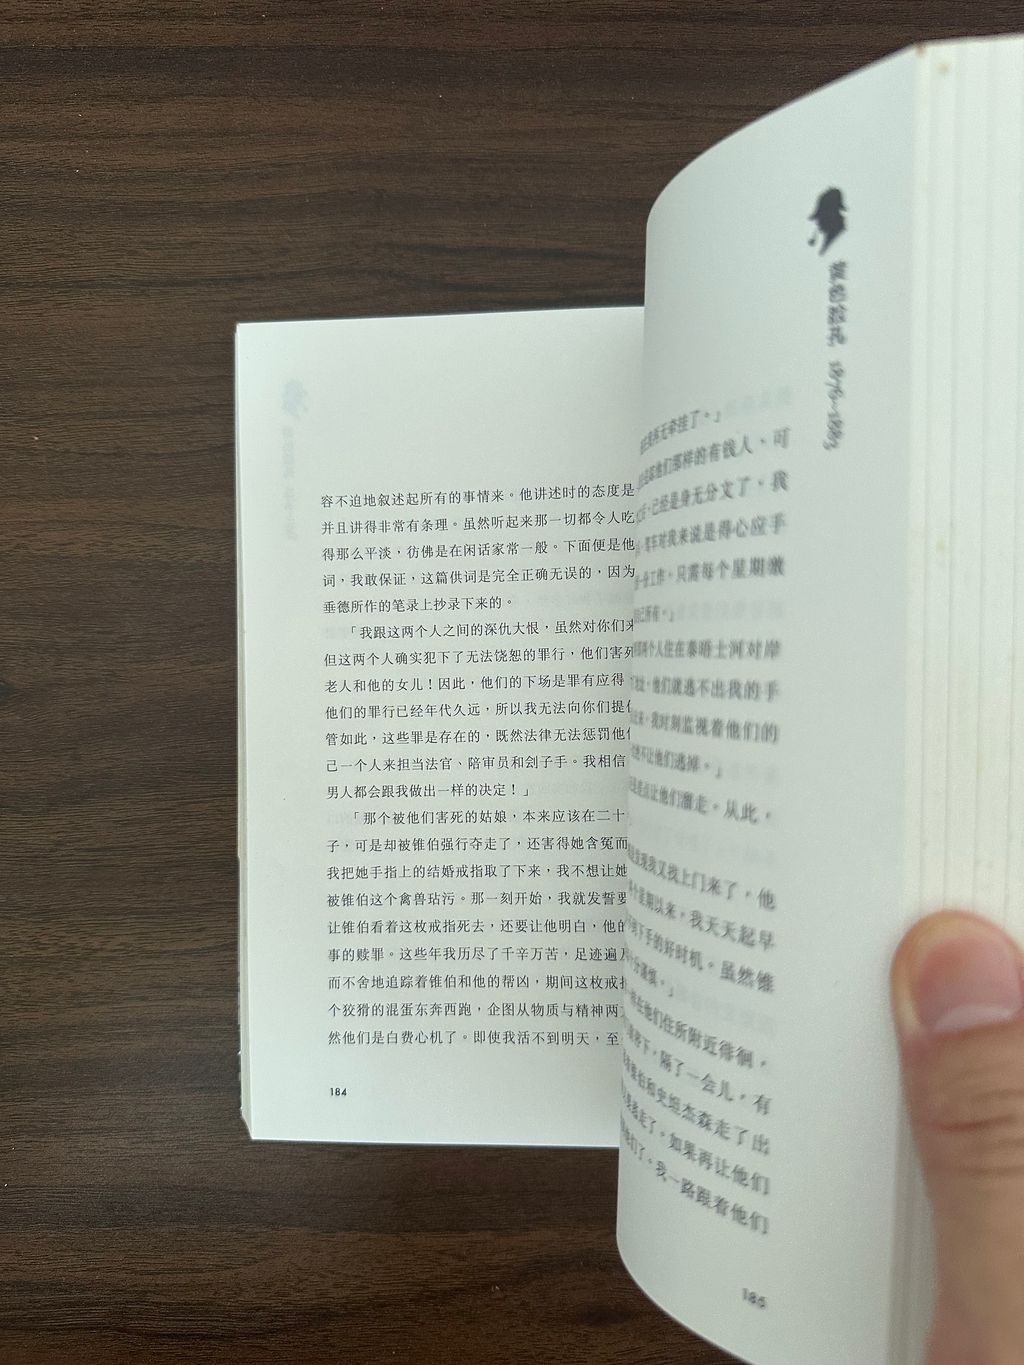 容不迫地叙述起所有的事情来。他讲述时的态度是
并且讲得非常有条理。虽然听起来那一切都令人吃
得那么平淡，彷佛是在闲话家常一般。下面便是他
词，我敢保证，这篇供词是完全正确无误的，因为
垂德所作的笔录上抄录下来的。
「我跟这两个人之间的深仇大恨，虽然对你们来
但这两个人确实犯下了无法饶恕的罪行，他们害死
老人和他的女儿！因此，他们的下场是罪有应得
他们的罪行已经年代久远，所以我无法向你们提
管如此，这些罪是存在的，既然法律无法惩罚他
己一个人来担当法官、陪审员和刽子手。我相信
男人都会跟我做出一样的决定！」
「那个被他们害死的姑娘，本来应该在二十
子，可是却被锥伯强行夺走了，还害得她含冤而
我把她手指上的结婚戒指取了下来，我不想让她
被锥伯这个禽兽玷污。那一刻开始，我就发誓要
让锥伯看着这枚戒指死去，还要让他明白，他的
事的赎罪。这些年我历尽了千辛万苦，足迹遍
而不舍地追踪着锥伯和他的帮凶，期间这枚戒指
个狡猾的混蛋东奔西跑，企图从物质与精神两
然他们是白费心机了。即使我活不到明天，至
184
1876—1885
再无牵挂了。」
他们那样的有钱人，可
已经是身无分文了，我
驾车对我来说是得心应手
份工作，只需每个星期缴
己所有。」
两个人住在泰晤士河对岸
他们就逃不出我的手
我时刻监视着他们的
不让他们逃掉。」
让他们溜走。从此，
发现我又找上门来了，他
个星期以来，我天天起早
下手的好时机。虽然锥
十分谨慎。」
在他们住所附近徘徊，
下，隔了一会儿，有
伯和史坦杰森走了出
走了。如果再让他们
们了。我一路跟着他们
185